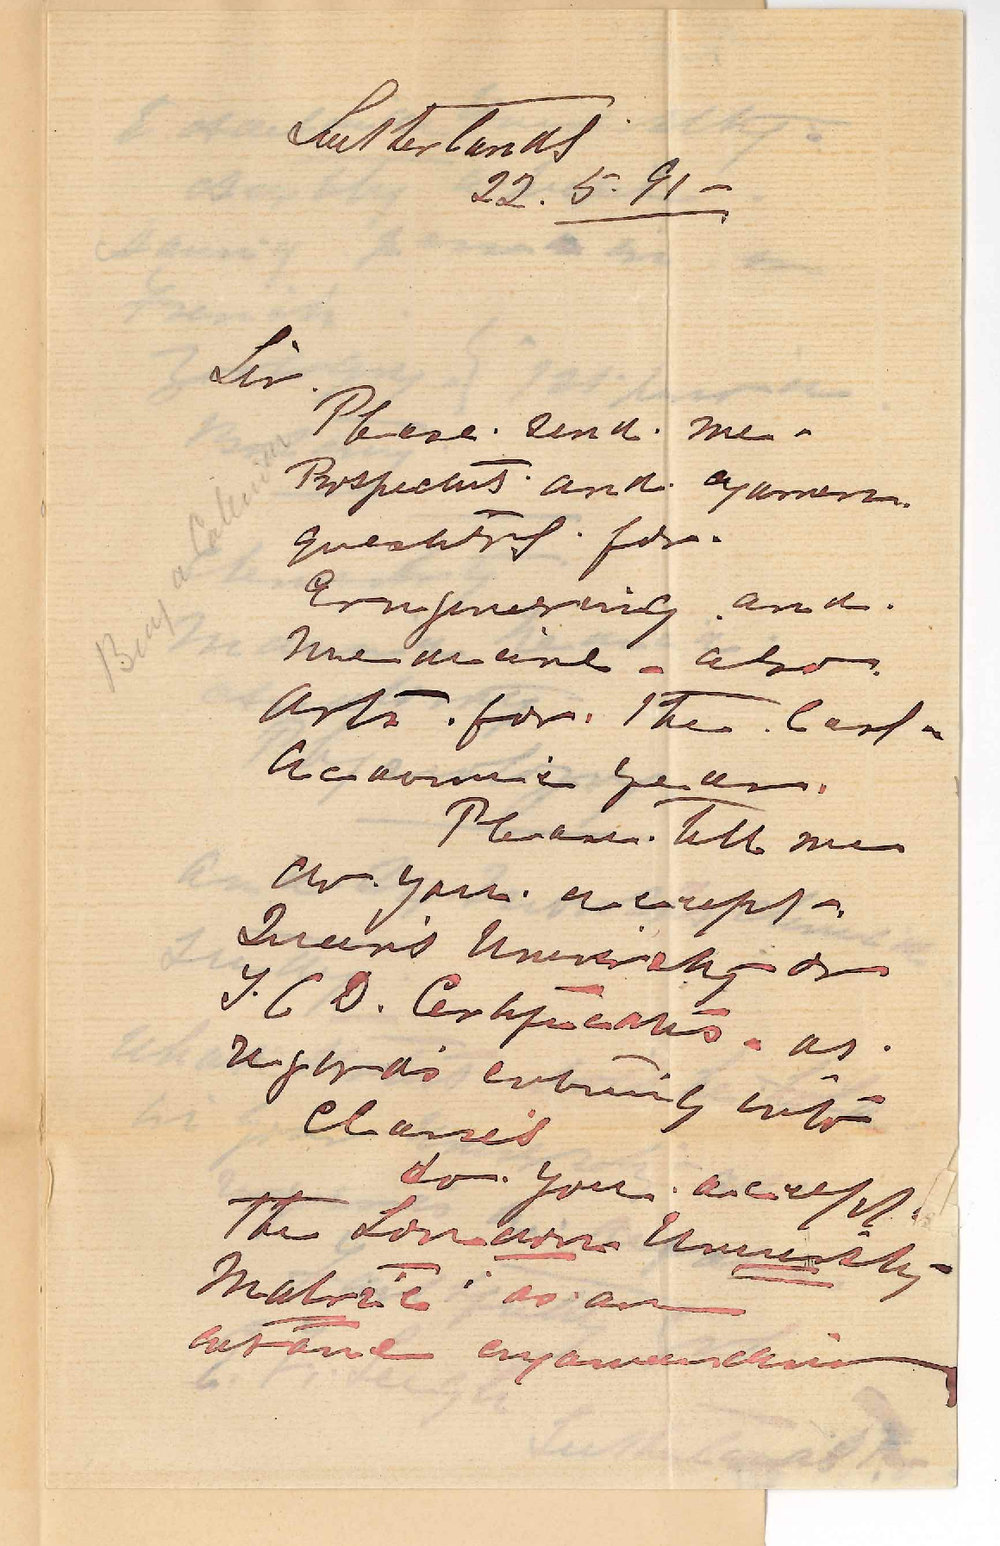 Sutherlands
22. 5. 91 -
Sir.
Please send me -
Prospectus and examn.
questions for.
Engineering and.
Medicine - also.
Arts for The last -
Academic Year.
Please Tell me
do you accept -
Queen's University or
T. C D. Certificates - as
regards entering into
Classes
do you accept.
The London University -
Matric as an
entrance examination